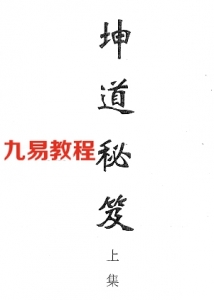 坤道秘笈
九易教程
上集